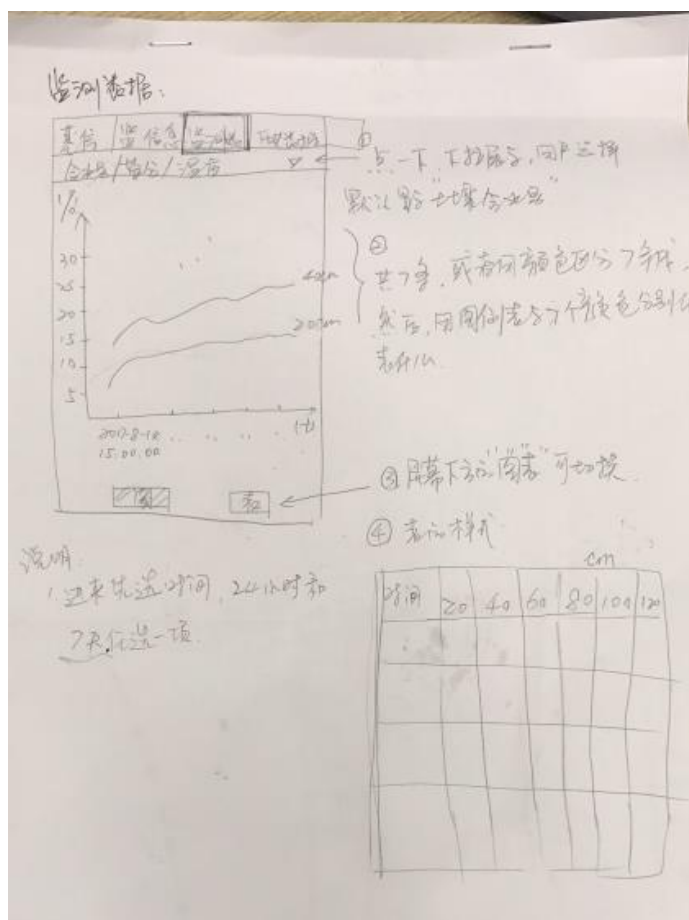 监测数据:
基信 监信息 监测信
含水量/盐分/温度
①
点一下,下拉展示,用户选择
默认显示"土壤含水量"
%
30
25
20
15
10
5
40cm
20cm
(t)
2017-8-10
15:00:00
②
共7条,或者用颜色区分7条线,
然后,用图例表示7个颜色分别代
表什么
图
表
③屏幕下方的"图表"可切换
④表的样式
cm
时间 20 40 60 80 100 120
说明
1.进来先选时间,24小时和
7天任选一项.